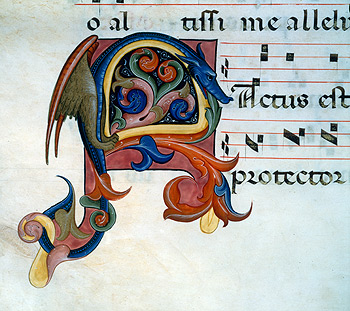 o al tissi me allelu
Actus est
protector